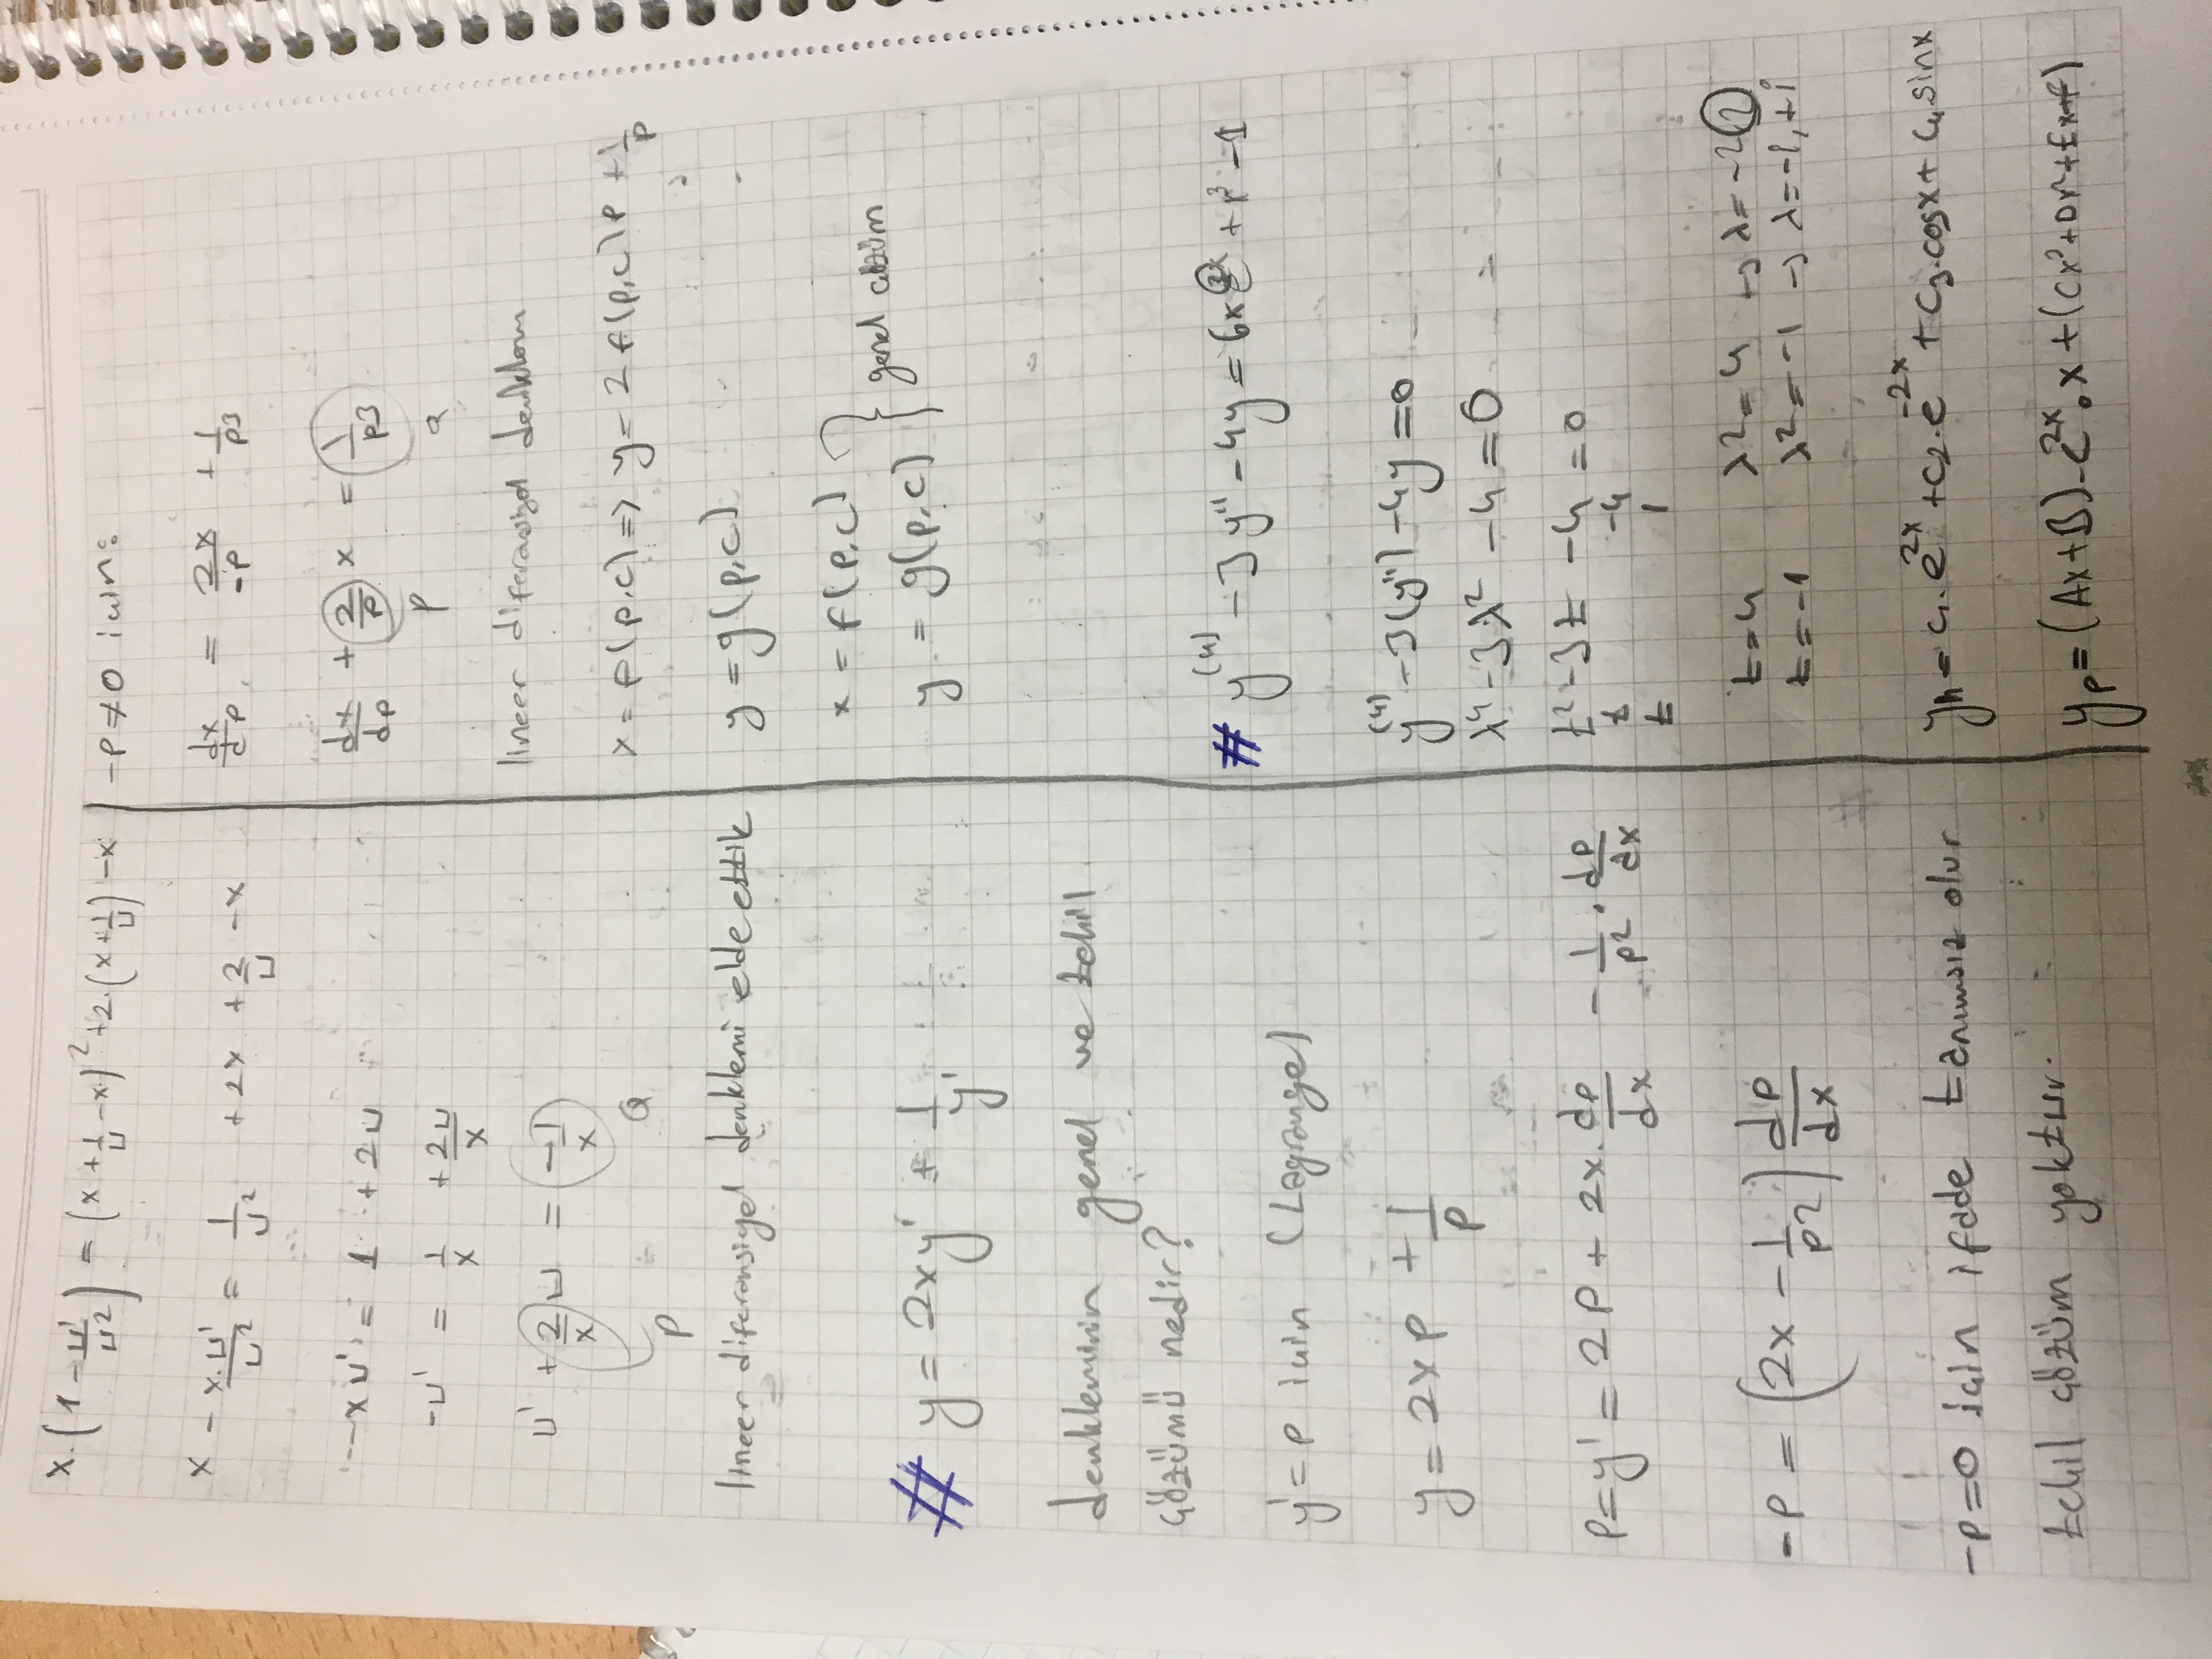 x.(1 - u'/u²) = (x + 1/u - x)² + 2.(x + 1/u) - x
x - x.u'/u² = 1/u² + 2x + 2/u - x
-xu' = 1 + 2u
-u' = 1/x + 2u/x
u' + 2/x u = -1/x
P Q
lineer diferansiyel denklemi elde ettik
# y = 2xy' + 1/y'
denkleminin genel ve tekil
çözümü nedir?
y' = p için (Lagrange)
y = 2xp + 1/p
p = y' = 2p + 2x.dp/dx - 1/p² . dp/dx
-p = (2x - 1/p²) dp/dx
-p=0 için ifade tanımsız olur
tekil çözüm yoktur.
-p≠0 için:
dx/dp = 2x/-p + 1/p³
dx/dp + 2/p x = 1/p³
P Q
lineer diferansiyel denklem
x = f(p,c) => y = 2 f(p,c) p + 1/p
y = g(p,c)
x = f(p,c)
y = g(p,c) } genel çözüm
# y⁽⁴⁾ - 3y'' - 4y = 6xe²ˣ + x³ - 1
y⁽⁴⁾ - 3(y'') - 4y = 0
λ⁴ - 3λ² - 4 = 0
t² - 3t - 4 = 0
t -4
t 1
t = 4 λ² = 4 → λ = -2 2
t = -1 λ² = -1 → λ = -i, +i
yh = c₁.e²ˣ + c₂.e⁻²ˣ + c₃.cosx + c₄.sinx
yp = (Ax+B).e²ˣ.x + (Cx³+Dx²+Ex+F)